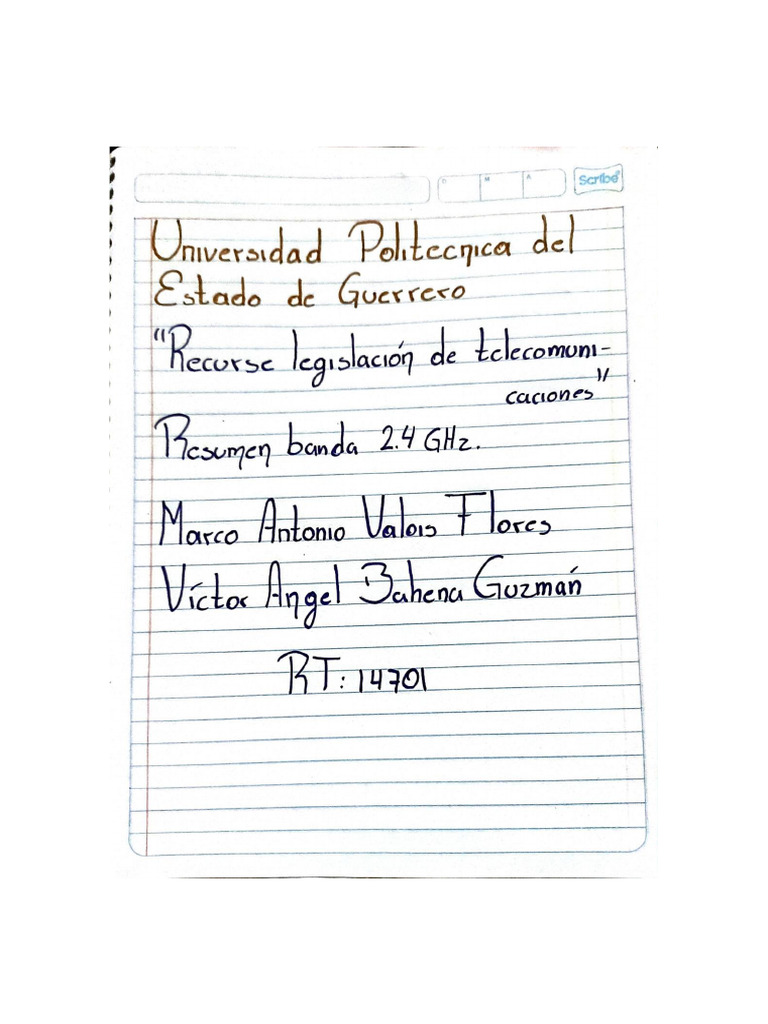 D M A Scribe
Universidad Politecnica del
Estado de Guerrero
"Recurse legislación de telecomuni-
caciones"
Resumen banda 2.4 GHz.
Marco Antonio Valois Flores
Víctor Angel Bahena Guzmán
RT: 14701